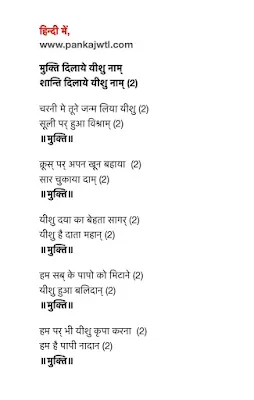 हिन्दी में,
www.pankajwtl.com
मुक्ति दिलाये यीशु नाम्
शान्ति दिलाये यीशु नाम् (2)
चरनी मे तूने जन्म लिया यीशु (2)
सूली पर् हुआ विश्राम् (2)
॥मुक्ति॥
क्रूस् पर् अपन खून बहाया (2)
सार चुकाया दाम् (2)
॥मुक्ति॥
यीशु दया का बेहता सागर् (2)
यीशु है दाता महान् (2)
॥मुक्ति॥
हम सब् के पापो को मिटाने (2)
यीशु हुआ बलिदान् (2)
॥मुक्ति॥
हम पर् भी यीशु कृपा करना (2)
हम है पापी नादान (2)
॥मुक्ति॥